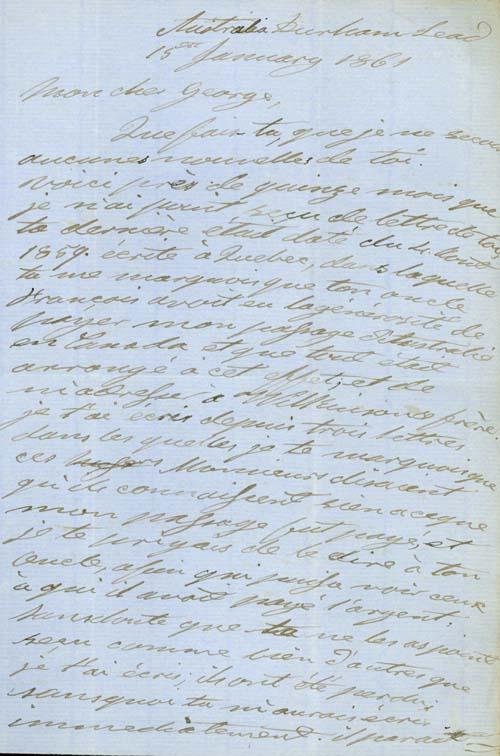 Australia Durham Lead
15 January 1861
Mon cher George,
Que fais tu, que je ne
aucunes nouvelles de toi.
voici près de quinze mois que
je n'ai point reçu de lettre de toi,
ta dernière était daté du 4 Août
1859. écrite à Quebec, dans laquelle
tu me marquois que ton oncle
François avoit eu la générosité de
payer mon passage d'Australie
en Canada et que tout était
arrangé à cet effet, et de
m'adresser à frère
je t'ai écris depuis trois lettres
dans les quelles je te marquois que
ces Monsieurs disoient
qu'ils connoissent rien a ce que
mon passage fut payé, et
je te priyais de le dire à ton
oncle, afin qui puisse voir ceux
à qui il avoit payé l'argent.
sans doute que tu ne les as point
reçu comme bien d'autres que
je t'ai écris, ils ont été perdu
sans quoi tu m'aurois écris
immédiatement. Il parait